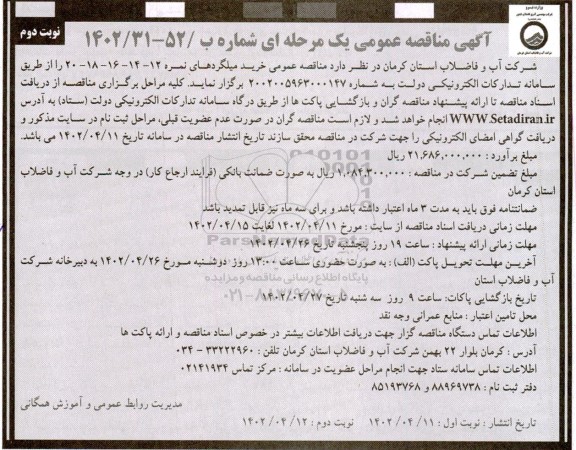 نوبت دوم
وزارت نیرو
آگهی مناقصه عمومی یک مرحله ای شماره ب /۵۲-۱۴۰۲/۳۱
شرکت آب و فاضلاب استان کرمان در نظر دارد مناقصه عمومی خرید میلگردهای نمره ۱۲-۱۴-۱۶-۱۸-۲۰ را از طریق
سامانه تدارکات الکترونیکی دولت به شماره ۲۰۰۲۰۰۵۹۶۳۰۰۰۱۴۷ برگزار نماید. کلیه مراحل برگزاری مناقصه از دریافت
اسناد مناقصه تا ارائه پیشنهاد مناقصه گران و بازگشایی پاکت ها از طریق درگاه سامانه تدارکات الکترونیکی دولت (ستاد) به آدرس
WWW.Setadiran.ir انجام خواهد شد و لازم است مناقصه گران در صورت عدم عضویت قبلی، مراحل ثبت نام در سایت مذکور و
دریافت گواهی امضای الکترونیکی را جهت شرکت در مناقصه محقق سازند تاریخ انتشار مناقصه در سامانه تاریخ ۱۴۰۲/۰۴/۱۱ می باشد.
مبلغ برآورد : ۲۱,۶۸۶,۰۰۰,۰۰۰ ریال
مبلغ تضمین شرکت در مناقصه : ۱,۰۸۴,۳۰۰,۰۰۰ ریال به صورت ضمانت بانکی (فرایند ارجاع کار) در وجه شرکت آب و فاضلاب
استان کرمان
ضمانتنامه فوق باید به مدت ۳ ماه اعتبار داشته باشد و برای سه ماه نیز قابل تمدید باشد
مهلت زمانی دریافت اسناد مناقصه از سایت : مورخ ۱۴۰۲/۰۴/۱۱ لغایت ۱۴۰۲/۰۴/۱۵
مهلت زمانی ارائه پیشنهاد : ساعت ۱۹ روز پنجشنبه تاریخ
آخرین مهلت تحویل پاکت (الف) : به صورت حضوری ساعت ۱۳:۰۰ روز دوشنبه مورخ ۱۴۰۲/۰۴/۲۶ به دبیرخانه شرکت
آب و فاضلاب استان
تاریخ بازگشایی پاکات: ساعت ۹ روز سه شنبه تاریخ ۱۴۰۲/۰۴/۲۷
محل تامین اعتبار : منابع عمرانی وجه نقد
اطلاعات تماس دستگاه مناقصه گزار جهت دریافت اطلاعات بیشتر در خصوص اسناد مناقصه و ارائه پاکت ها
آدرس : کرمان بلوار ۲۲ بهمن شرکت آب و فاضلاب استان کرمان تلفن : ۳۳۲۲۲۹۶۰ - ۰۳۴
اطلاعات تماس سامانه ستاد جهت انجام مراحل عضویت در سامانه : مرکز تماس ۰۲۱۴۱۹۳۴
دفتر ثبت نام : ۸۸۹۶۹۷۳۸ و ۸۵۱۹۳۷۶۸
مدیریت روابط عمومی و آموزش همگانی
تاریخ انتشار : نوبت اول : ۱۴۰۲/۰۴/۱۱ نوبت دوم : ۱۴۰۲/۰۴/۱۲